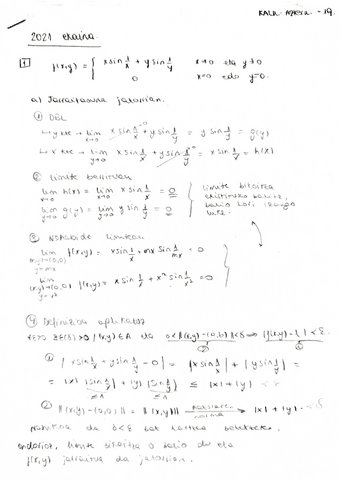 2021 ekaina
1 f(x,y) = { x sin 1/x + y sin 1/y x≠0 eta y≠0
0 x=0 edo y=0.
a) Jarraitasuna jatorrian.
① DBL
↪ y kte → lim x→0 x sin 1/x + y sin 1/y = y sin 1/y = g(y)
↪ x kte → lim y→0 x sin 1/x + y sin 1/y = x sin 1/x = h(x)
② Limite berrituak
lim x→0 h(x) = lim x→0 x sin 1/x = 0
lim y→0 g(y) = lim y→0 y sin 1/y = 0
limite bikoitza
existitzeko balioz,
balio hori izango
luke.
③ Norabide limiteak
lim (x,y)→(0,0) y=mx f(x,y) = x sin 1/x + mx sin 1/mx = 0
lim (x,y)→(0,0) y=x² f(x,y) = x sin 1/x + x² sin 1/x² = 0
④ Definizioa aplikatuz
∀ε>0 ∃δ(ε)>0 / (x,y)∈A eta 0<‖(x,y)-(0,0)‖<δ ⇒ |f(x,y)-l|<ε.
① | x sin 1/x + y sin 1/y - 0 | = | x sin 1/x | + | y sin 1/y | =
= |x| |sin 1/x| + |y| |sin 1/y| ≤ |x| + |y|
≤1 ≤1
② ‖(x,y)-(0,0)‖ = ‖(x,y)‖ |x| + |y|
Nahikoa da δ<ε bat hartzea
ondorioz, limite bikoitza 0 balio du eta
f(x,y) jarraitua da jatorrian.